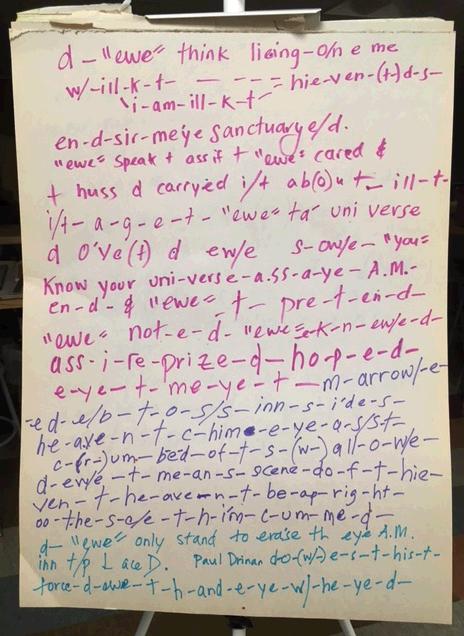 d-"ewe" think living-o/n e me
w/-ill-k-t- - - - - hie-ven-(t)d-s-
'i-am-ill-k-t-
en-d-sir-me'ye sanctuarye/d.
"ewe" speak t assif t "ewe" cared &
t huss d carryed i/t ab(o)ut_ ill-t-
i/t-a-g-e-t-"ewe" ta' universe
d o've(t) d ew/e s-ow/e-"you"
Know your uni-verse-a.ss-a-ye-A.M.-
en-d-& "ewe" -t- pre-t-en-d-
"ewe" not-e-d-"ewe" e-k-n-ew/e-d-
ass-i-re-prize-d-ho-p-e-d-
e-ye-t-me-ye-t-m-arrow/-e-
-ed-e/b-t-o-s/s-inn-s-i'de-s-
he-ave-n-t-c-him e-eye-a-s/s-t-
c-(r-)um-bed-of-t-s-(w-)all-o-w/e-
d-ew/e-t-me-an-s-scene-do-f-t-hie-
ven-t-he-ave-n-t-be-ap-rig-ht-
oo-the-s-c/e-t-h-i'm-c-um-me-d-
d- "ewe" only stand to erase th eye A.M.
inn t/p L ace D. Paul Drinan do-(w/-)e-s-t-his-t-
force-d-owe-t-h-and-e-ye-w/-he-ye-d-